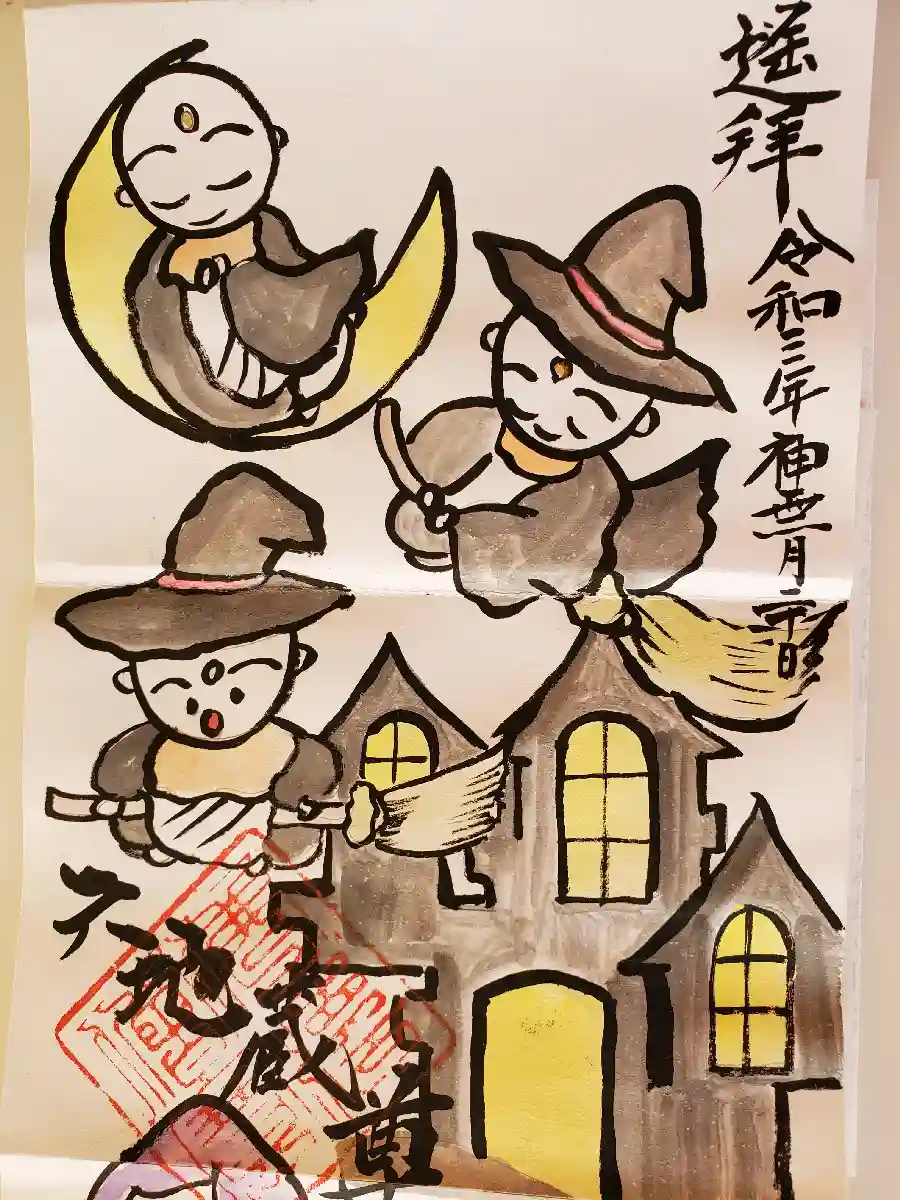 遥拝 令和三年 神無月二十日
六地蔵尊